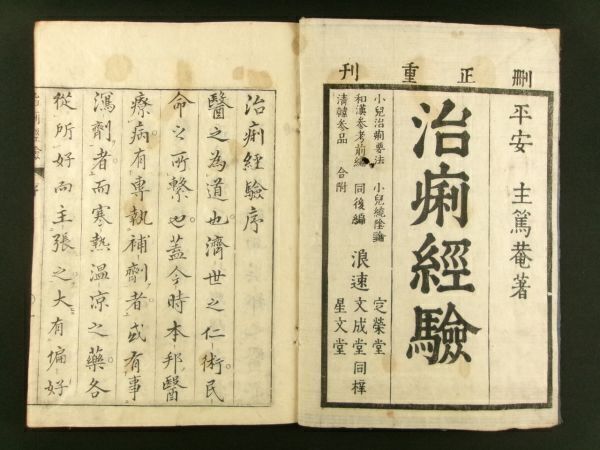 刪正重刊
平安 主篤菴著
治痢經驗
小兒治痢要法 小兒繞陰論
和漢参考前編 同後編
清韓参品 合附
浪速
定榮堂
文成堂同梓
星文堂
治痢經驗序
醫之為道也濟世之仁術民
命之所繋也蓋今時本邦醫
療病有專執補劑者或有事
瀉劑者而寒熱温凉之藥各
從所好而主張之大有偏好
治痢經驗 序